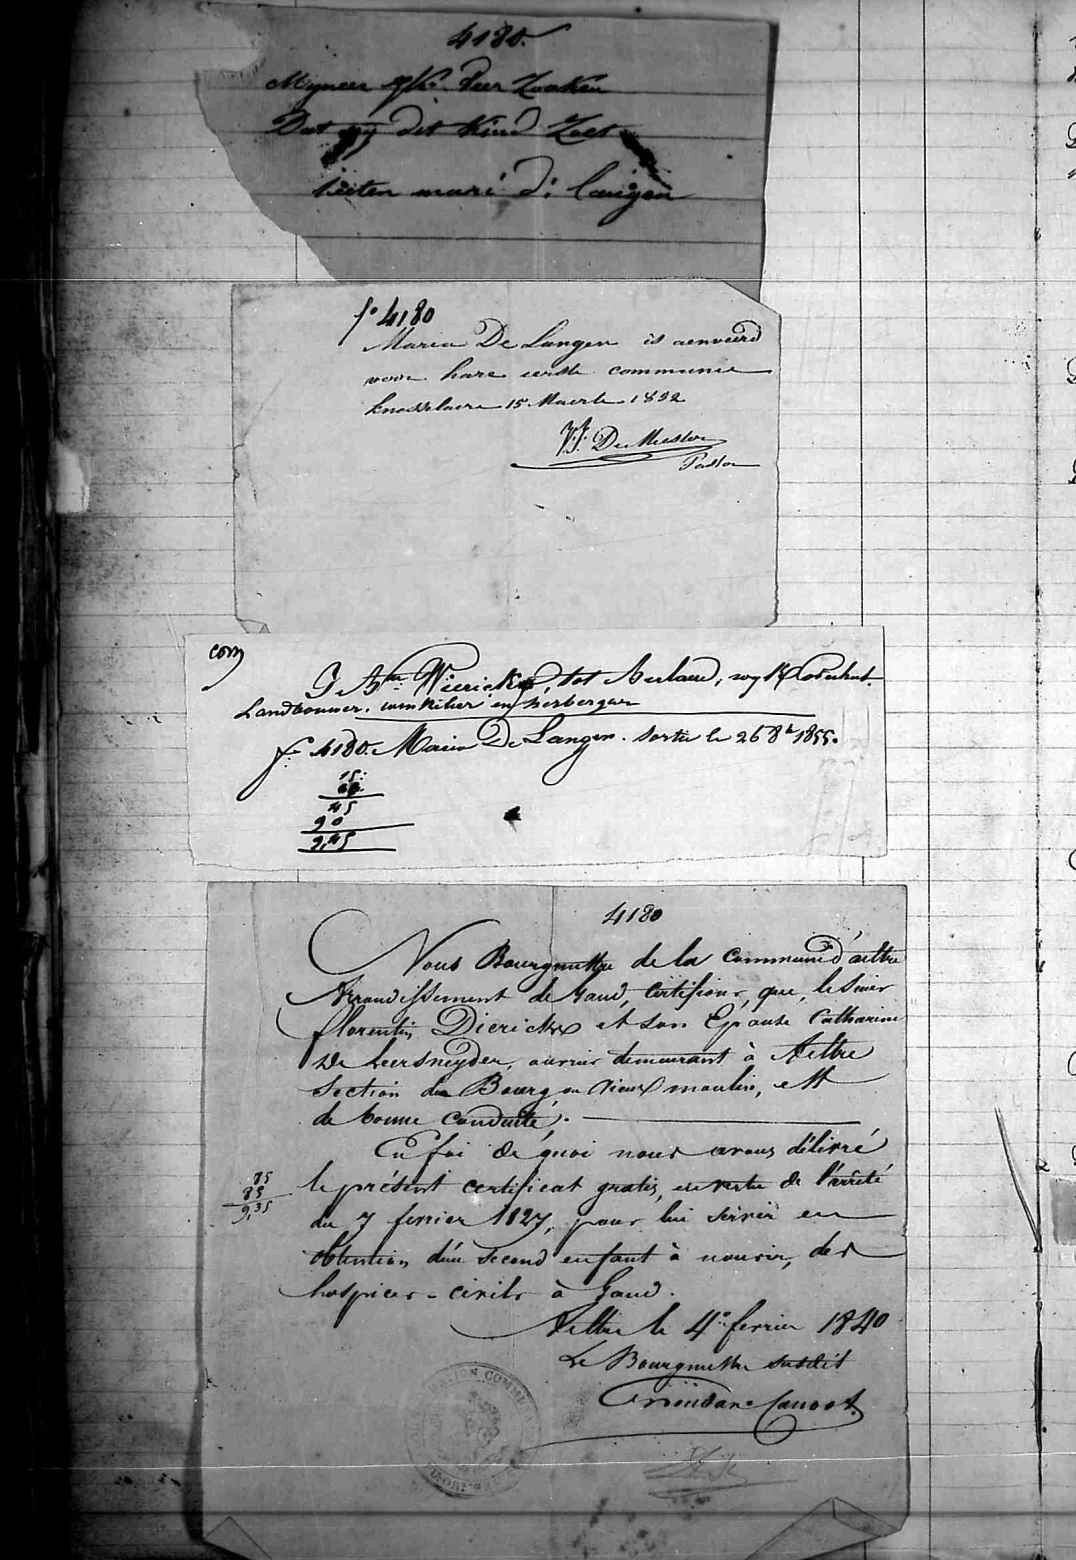 4180.
Myneer Veer Zoeken
Dat gy dit kind Zoet
heeten mari d: langen
f° 4180
Maria De Langen is aenveerd
voor hare eerste communie
Knesselaere 15 Maerte 1852
De Meester
Pastor
com
Diericks, tot Aerlaere, wyk
Landbouwer, winkelier en herbergier
f° 4180. Maria De Langen. Sortie le 26 8b 1855.
15
45
90
9,45
4180
Nous Bourgmettre de la Commune d'aeltre
Arrondissement de Gand, certifions, que, le Sieur
florentin Dierickx et son Epouse Catharine
De Leersneyder, ouvrier demeurant à Aeltre
Section du Bourg ou vieux moulin, est
de bonne conduite.
En foi de quoi nous avons délivré
le présent certificat gratis, en vertu de l'arrêté
du 7 fevrier 1827, pour lui servir en
obtention d'un second enfant à nourir, des
hospices-civils à Gand.
85
85
9,35
Aeltre le 4e fevrier 1840
Le Bourgmettre susdit